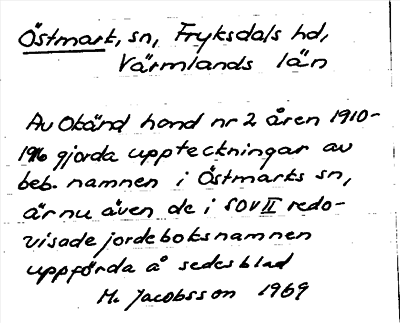 Östmark, sn, Fryksdals hd,
Värmlands län
Av Okänd hand nr 2 åren 1910-
1916 gjorda uppteckningar av
beb. namnen i Östmarks sn,
är nu även de i SOV II redo-
visade jordeboksnamnen
uppförda å sedesblad
M. Jacobsson 1969